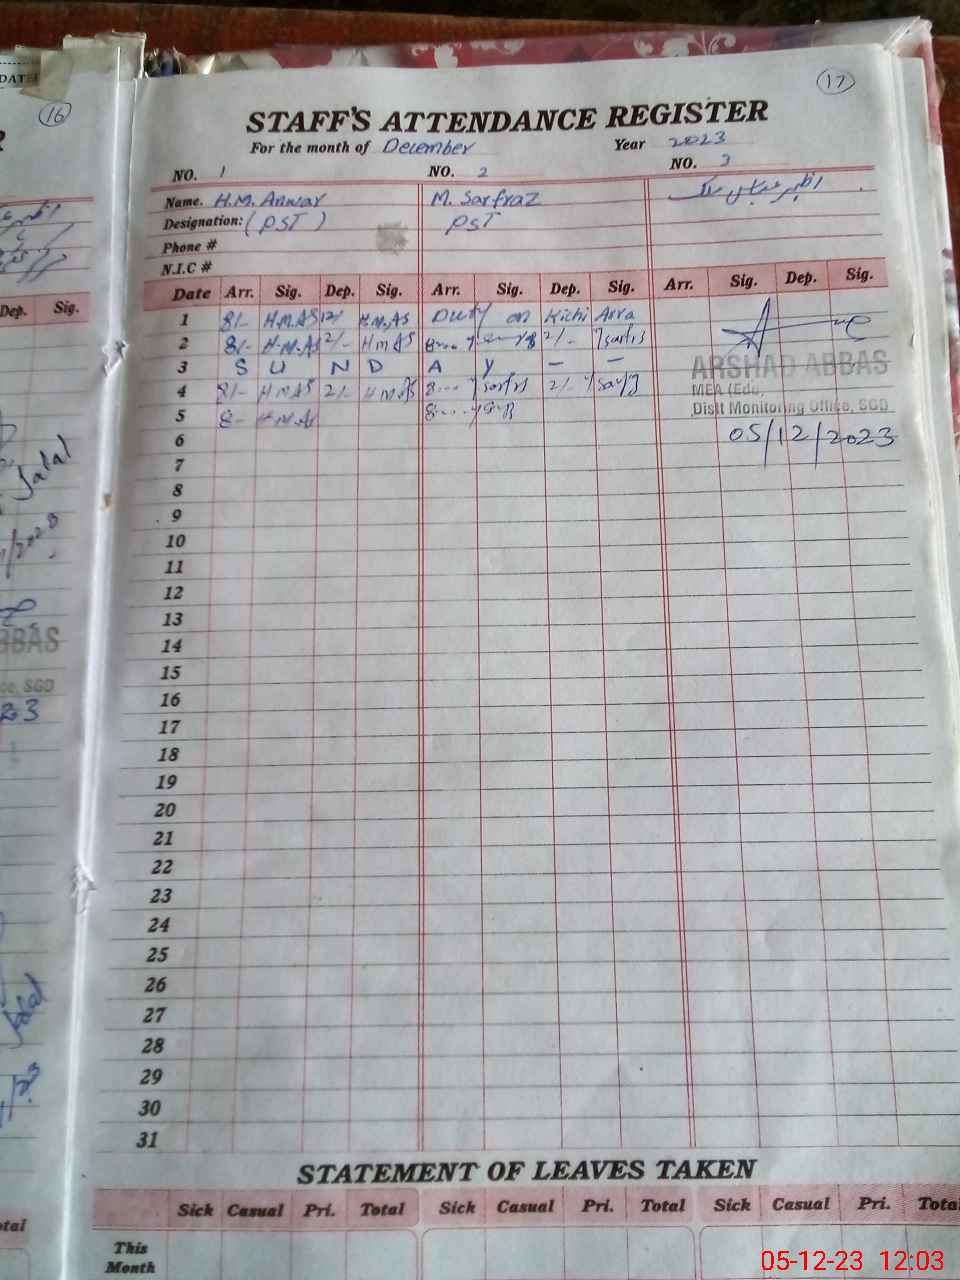 DATE
16
17
STAFF'S ATTENDANCE REGISTER
For the month of December Year 2023
NO. 1 NO. 2 NO. 3
Name. H.M. Anwar M. Sarfraz
Designation: (PST) PST
Phone #
N.I.C #
Dep. Sig.
Date Arr. Sig. Dep. Sig. Arr. Sig. Dep. Sig. Arr. Sig. Dep. Sig.
1 8/- H.M.AS 12/ H.M.AS Duty on Kichi Arra
2 8/- H.M.AS 2/- H.M.AS 8 2/-
3 S U N D A Y - -
4 8/- H.M.AS 2/- H.M.AS 8 2/-
5 8- H.M.AS 8
ARSHAD ABBAS
MEA (Edu)
Distt Monitoring Office, SGD
05/12/2023
6
7
8
9
10
11
12
13
14
15
16
17
18
19
20
21
22
23
24
25
26
27
28
29
30
31
Jalal
BBAS
ce, SGD
23
Jalal
STATEMENT OF LEAVES TAKEN
Sick Casual Pri. Total Sick Casual Pri. Total Sick Casual Pri. Total
This
Month
otal
05-12-23 12:03